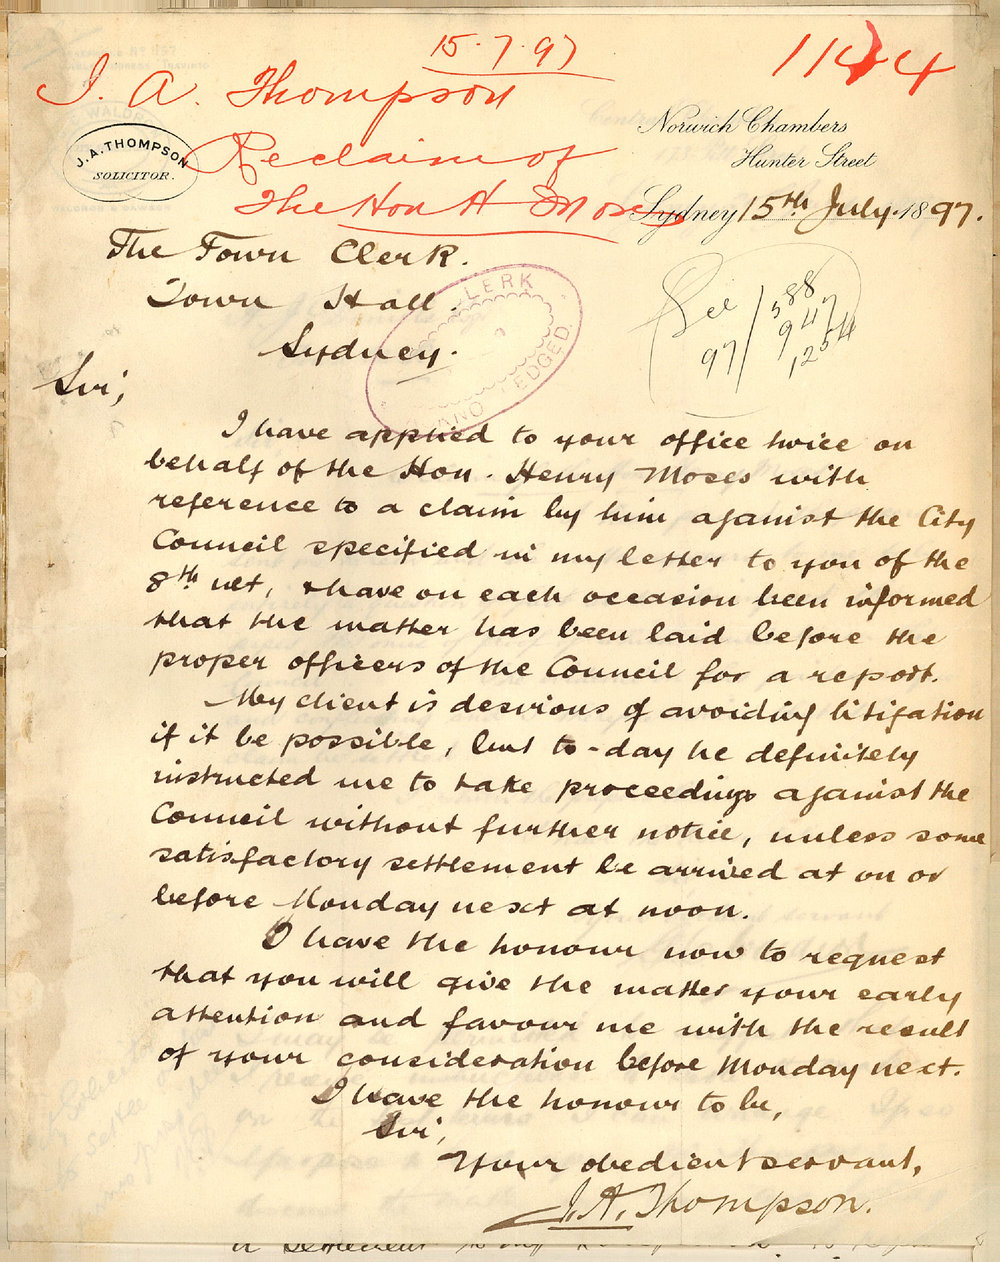 15.7.97
1144
J. A. Thompson
Re claim of
The Hon H Moses
J. A. THOMPSON
SOLICITOR.
Norwich Chambers
Hunter Street
Sydney 15th July 1897.
The Town Clerk.
Town Hall.
Sydney.
CLERK
AND
LEDGED.
See 97/588
947
1254
Sir,
I have applied to your office twice on
behalf of the Hon. Henry Moses with
reference to a claim by him against the City
Council specified in my letter to you of the
8th ult, & have on each occasion been informed
that the matter has been laid before the
proper officers of the Council for a report.
My client is desirous of avoiding litigation
if it be possible, but to-day he definitely
instructed me to take proceedings against the
Council without further notice, unless some
satisfactory settlement be arrived at on or
before Monday next at noon.
I have the honour now to request
that you will give the matter your early
attention and favour me with the result
of your consideration before Monday next.
I have the honour to be,
Sir,
Your obedient servant,
J. A. Thompson.